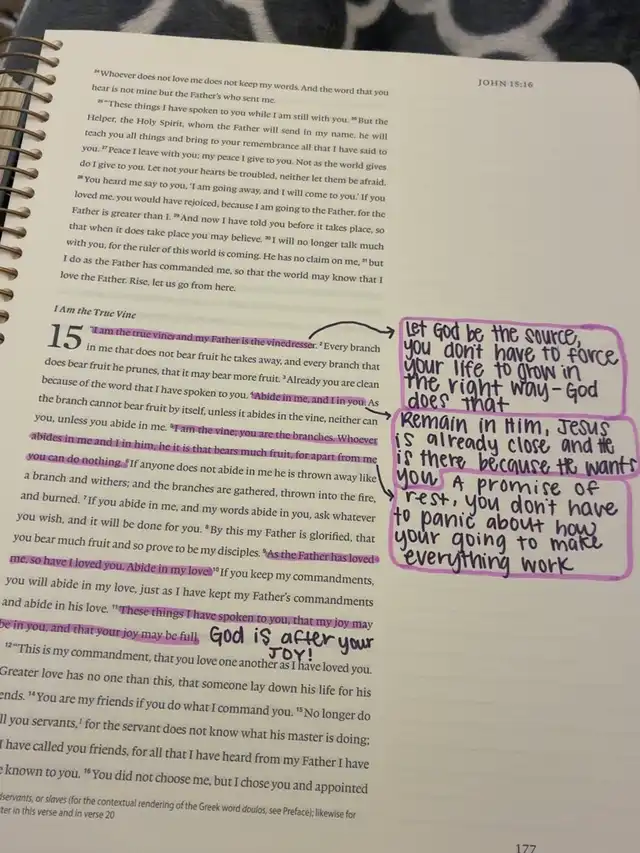 JOHN 15:16
²⁴Whoever does not love me does not keep my words. And the word that you
hear is not mine but the Father's who sent me.
²⁵"These things I have spoken to you while I am still with you. ²⁶But the
Helper, the Holy Spirit, whom the Father will send in my name, he will
teach you all things and bring to your remembrance all that I have said to
you. ²⁷Peace I leave with you; my peace I give to you. Not as the world gives
do I give to you. Let not your hearts be troubled, neither let them be afraid.
²⁸You heard me say to you, 'I am going away, and I will come to you.' If you
loved me, you would have rejoiced, because I am going to the Father, for the
Father is greater than I. ²⁹And now I have told you before it takes place, so
that when it does take place you may believe. ³⁰I will no longer talk much
with you, for the ruler of this world is coming. He has no claim on me, ³¹but
I do as the Father has commanded me, so that the world may know that I
love the Father. Rise, let us go from here.
I Am the True Vine
15 "I am the true vine, and my Father is the vinedresser. ²Every branch
in me that does not bear fruit he takes away, and every branch that
does bear fruit he prunes, that it may bear more fruit. ³Already you are clean
because of the word that I have spoken to you. ⁴Abide in me, and I in you. As
the branch cannot bear fruit by itself, unless it abides in the vine, neither can
you, unless you abide in me. ⁵I am the vine; you are the branches. Whoever
abides in me and I in him, he it is that bears much fruit, for apart from me
you can do nothing. ⁶If anyone does not abide in me he is thrown away like
a branch and withers; and the branches are gathered, thrown into the fire,
and burned. ⁷If you abide in me, and my words abide in you, ask whatever
you wish, and it will be done for you. ⁸By this my Father is glorified, that
you bear much fruit and so prove to be my disciples. ⁹As the Father has loved
me, so have I loved you. Abide in my love. ¹⁰If you keep my commandments,
you will abide in my love, just as I have kept my Father's commandments
and abide in his love. ¹¹These things I have spoken to you, that my joy may
be in you, and that your joy may be full. GOD is after your
JOY!
¹²"This is my commandment, that you love one another as I have loved you.
Greater love has no one than this, that someone lay down his life for his
ends. ¹⁴You are my friends if you do what I command you. ¹⁵No longer do
ll you servants,¹ for the servant does not know what his master is doing;
I have called you friends, for all that I have heard from my Father I have
e known to you. ¹⁶You did not choose me, but I chose you and appointed
dservants, or slaves (for the contextual rendering of the Greek word doulos, see Preface); likewise for
ter in this verse and in verse 20
Let God be the source,
you don't have to force
your life to grow in
the right way – God
does that
Remain in Him, Jesus
is already close and He
is there because He wants
you. A promise of
rest, you don't have
to panic about how
your going to make
everything work
177